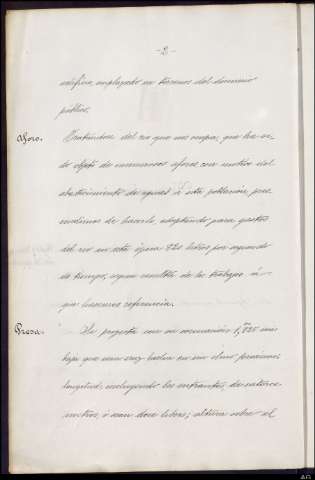 -2-
edificio, emplazado en terrenos del dominio
público.
Aforo.
Tratándose del rio que nos ocupa, que ha si-
do objeto de numerosos aforos con motivo del
abastecimiento de aguas á esta poblacion, pres-
cindimos de hacerlo, adoptando para gastos
del rio en esta época 820 litros por segundo
de tiempo, segun resulta de los trabajos á
que hacemos referencia.
Presa.
Se proyecta con su coronación 1,825 mas
baja que una
longitud, incluyendo los entrantes, de catorce
metros, ó sean doce libres; altura sobre el